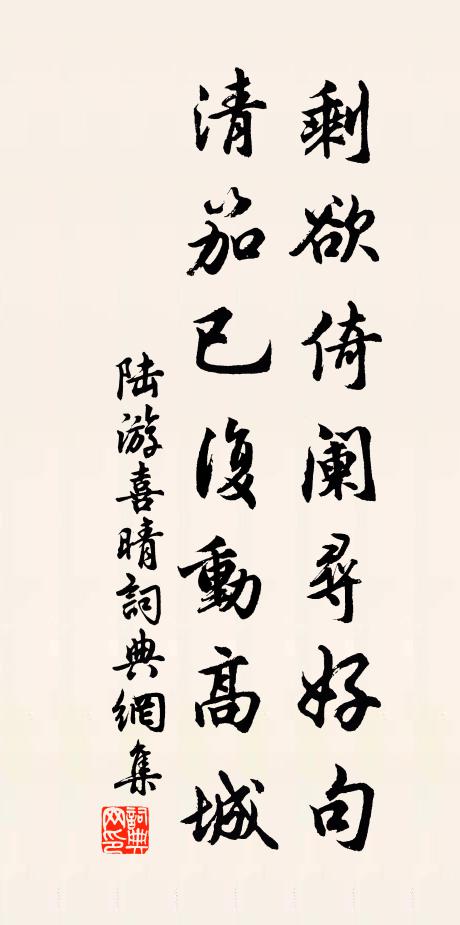 剩欲倚阑尋好句
清笳已復動高城
陆游喜晴詞典網集
詞典網印